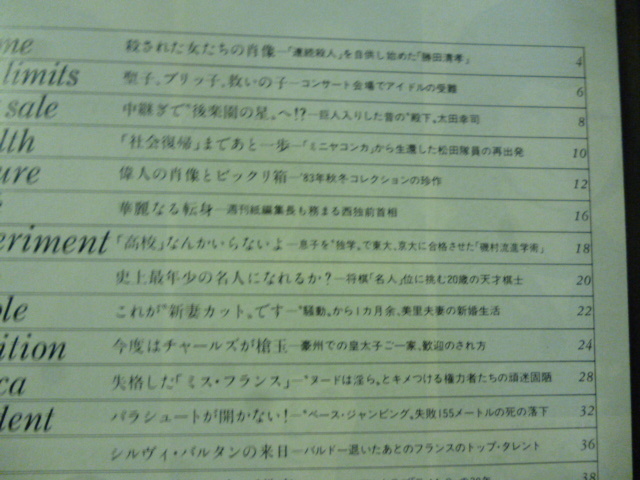 me 殺された女たちの肖像—「連続殺人」を自供し始めた「勝田清孝」 4
limits 聖子、ブリッ子、救いの子—コンサート会場でアイドルの受難 6
sale 中継ぎで"後楽園の星"へ!?—巨人入りした昔の"殿下"太田幸司 8
lth 「社会復帰」まであと一歩—「ミニヤコンカ」から生還した松田隊員の再出発 10
ure 偉人の肖像とビックリ箱—'83年秋冬コレクションの珍作 12
華麗なる転身—週刊紙編集長も務まる西独前首相 16
eriment 「高校」なんかいらないよ—息子を"独学"で東大、京大に合格させた「磯村流進学術」 18
史上最年少の名人になれるか?—将棋「名人」位に挑む20歳の天才棋士 20
ple これが"新妻カット"です—"騒動"から1カ月余、美里夫妻の新婚生活 22
ition 今度はチャールズが槍玉—豪州での皇太子ご一家、歓迎のされ方 24
ca 失格した「ミス・フランス」—"ヌードは淫ら"とキメつける権力者たちの頑迷固陋 28
dent パラシュートが開かない!—"ベース・ジャンピング"失敗155メートルの死の落下 32
シルヴィ・バルタンの来日—バルドー退いたあとのフランスのトップ・タレント 36
38